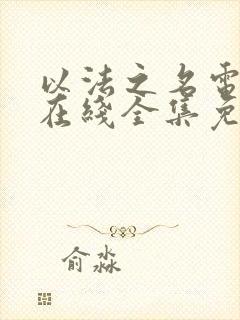 以法之名电
在线全集免
俞淼